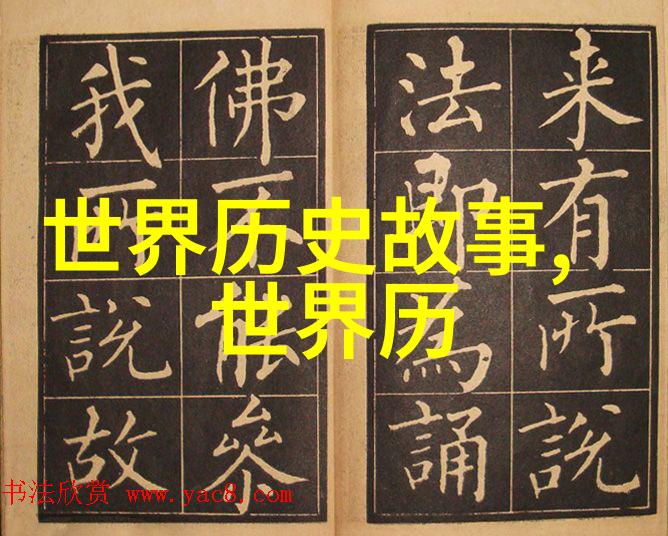 世界历史故事,
世界历
来有所說
法即為誦
佛不能叅
我所說故
书法欣赏 www.yac8.com